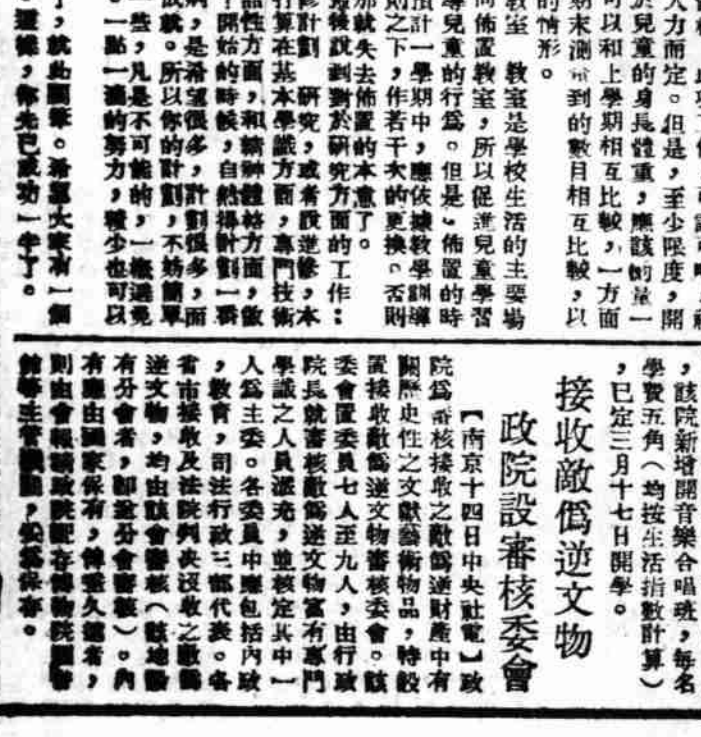 大力而定。但是，至少限度，開
於兒童的身長體重，應該衡量一
可以和上學期相互比較，一方面
期末測 到的數目相互比較，以
的情形。
教室 教室是學校生活的主要場
佈置教室，所以促進兒童學習
導兒童的行為。但是，佈置的時
預計一學期中，應依據教學訓導
則之下，作若干次的更換。否則
那就失去佈置的本意了。
最後說到對於研究方面的工作：
修計劃 研究，或者說進修，本
打算在基本學識方面，專門技術
性方面，和精神體格方面，做
開始的時候，自然得計劃一番
，是希望很多，計劃很多，而
成就。所以你的計劃，不妨簡單
一些，凡是不可能的，一概避免
。一點一滴的努力，積少也可以
，就此 。希望大家有一個
這樣，你先已成功一半了。
，該院新增開音樂合唱班，每名
學費五角（均按生活指數計算）
，已定三月十七日開學。
接收敵偽逆文物
政院設審核委會
【南京十四日中央社電】政
院為審核接收之敵偽逆財產中有
關歷史性之文獻藝術物品，特設
置接收敵偽逆文物審核委會。該
委會置委員七人至九人，由行政
院長就審核敵偽逆文物富有專門
學識之人員遴充，並核定其中一
人為主委。各委員中應包括內政
，教育，司法行政三部代表。各
省市接收及法院判決沒收之敵偽
逆文物，均由該會審核（該地設
有分會者，即送分會審核）。內
有應由國家保有，傳垂久遠者，
則由會報請政院配存博物院圖書
館等主管機關，妥為保存。